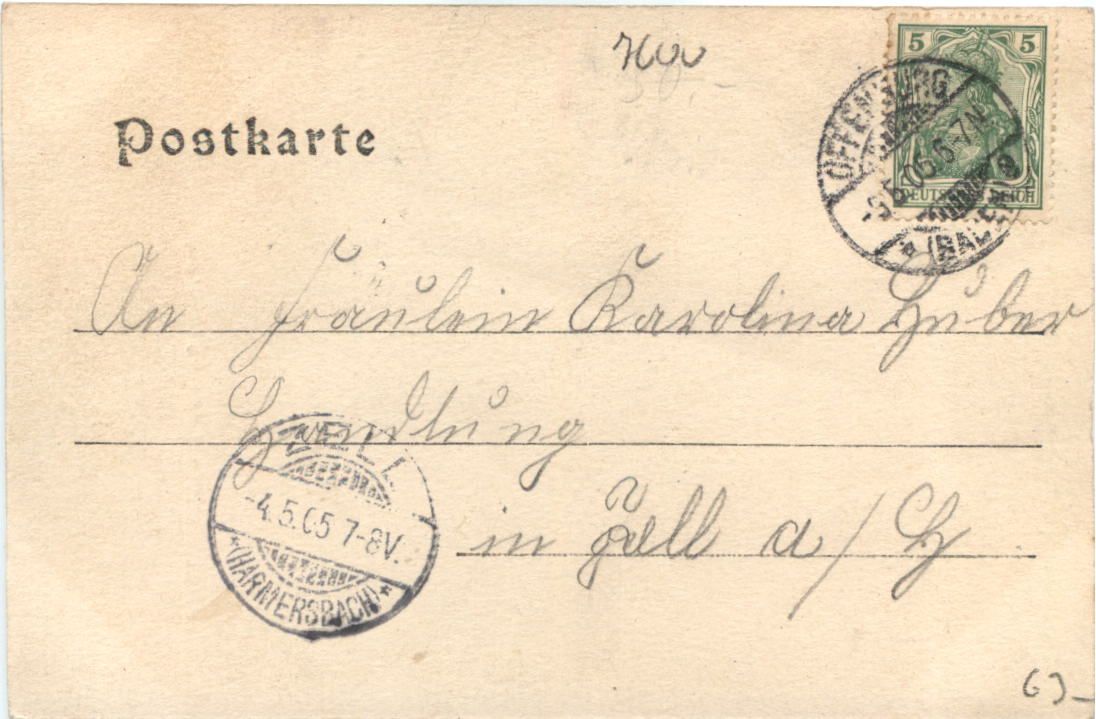 5 5
DEUTSCHES REICH
OFFENBURG
.5.05.6-7N
* (BADEN)
Postkarte
An Fräulein Karolina Huber
Handlung
in Zell a/H
ZELL
-4.5.05 7-8V.
*(HARMERSBACH)*
63-